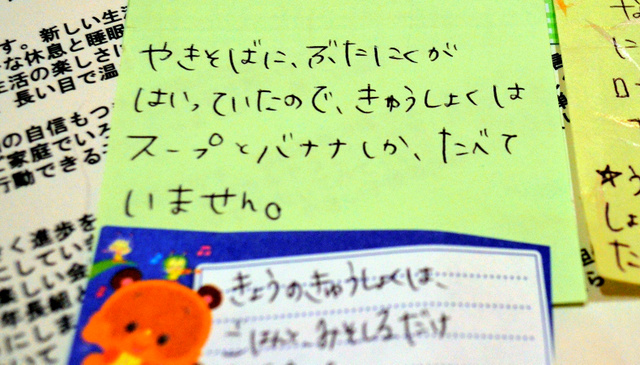 やきそばに、ぶたにくが
はいっていたので、きゅうしょくは
スープとバナナしか、たべて
いません。
きょうのきゅうしょくは、
ごはんと、みそしるだけ
新しい生活
な休息と睡眠
生活の楽しさに
長い目で温
の自信もつ
ご家庭でいろ
行動できるこ
く進歩を
にしてい
楽しい会
年長組と
にしま